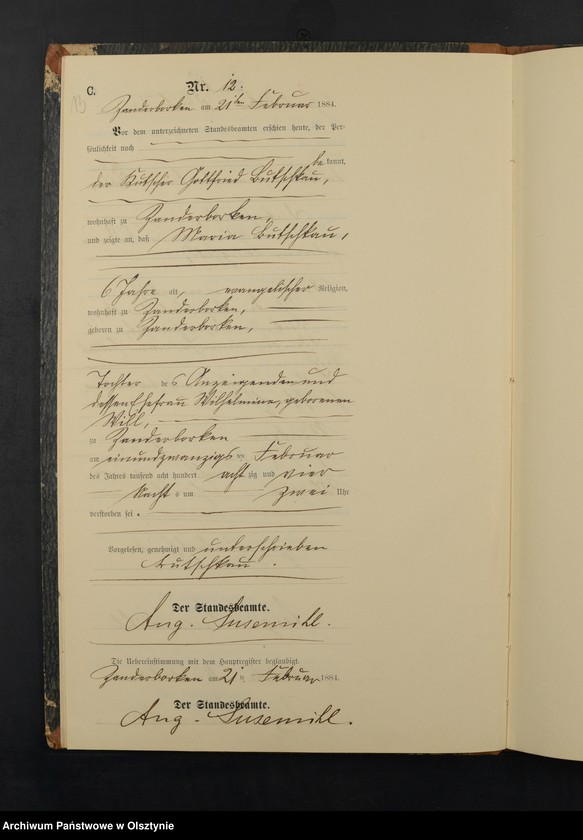 C.
Nr. 12.
13
Zanderborken am 21ten Februar 1884.
Vor dem unterzeichneten Standesbeamten erschien heute, der Per-
sönlichkeit nach
bekannt,
der Kutscher Gottfried Butschkau,
wohnhaft zu Zanderborken,
und zeigte an, daß Maria Butschkau,
6 Jahre alt, evangelischer Religion,
wohnhaft zu Zanderborken,
geboren zu Zanderborken,
Tochter des Anzeigenden und
dessen Ehefrau Wilhelmine, geborenen
Will,
zu Zanderborken
am einundzwanzigsten Februar
des Jahres tausend acht hundert achtzig und vier
Nachts um zwei Uhr
verstorben sei.
Vorgelesen, genehmigt und unterschrieben
Butschkau.
Der Standesbeamte.
Aug. Susemihl.
Die Uebereinstimmung mit dem Hauptregister beglaubigt.
Zanderborken am 21ten Februar 1884.
Der Standesbeamte.
Aug. Susemihl.
Archiwum Państwowe w Olsztynie